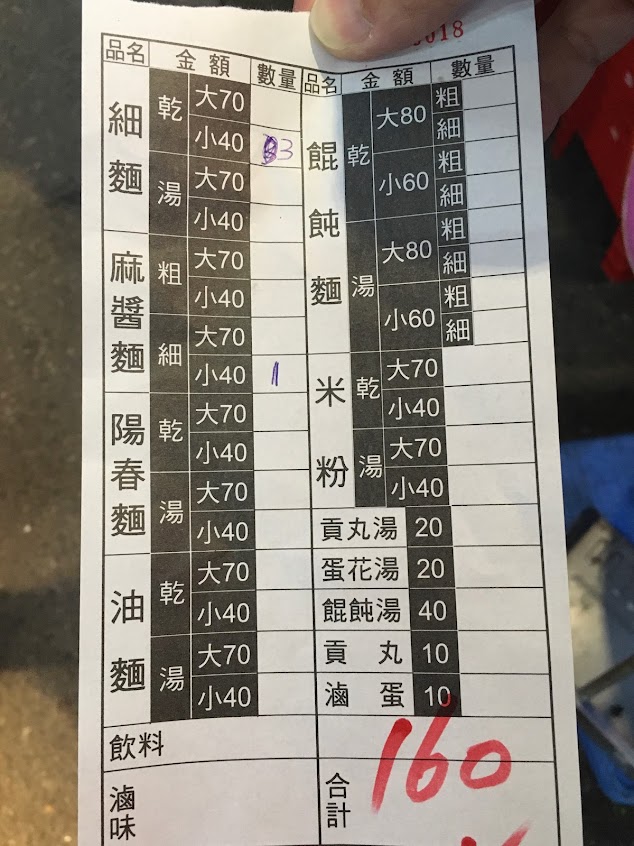 0018
品名 金額 數量 品名 金額 數量
細麵 乾 大70
小40 3
湯 大70
小40
麻醬麵 粗 大70
小40
細 大70
小40 1
陽春麵 乾 大70
小40
湯 大70
小40
油麵 乾 大70
小40
湯 大70
小40
飲料
滷味
餛飩麵 乾 大80 粗
細
小60 粗
細
湯 大80 粗
細
小60 粗
細
米粉 乾 大70
小40
湯 大70
小40
貢丸湯 20
蛋花湯 20
餛飩湯 40
貢丸 10
滷蛋 10
合計 160